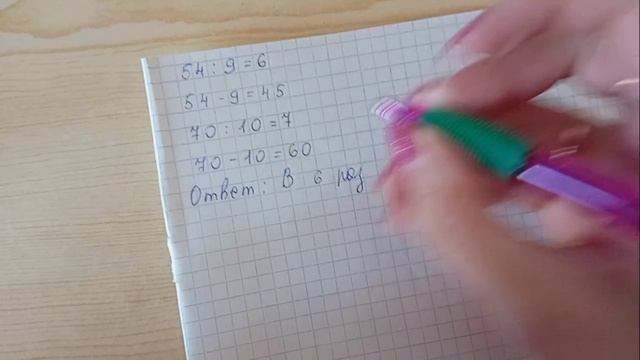 54 : 9 = 6
54 - 9 = 45
70 : 10 = 7
70 - 10 = 60
Ответ: В 6 раз